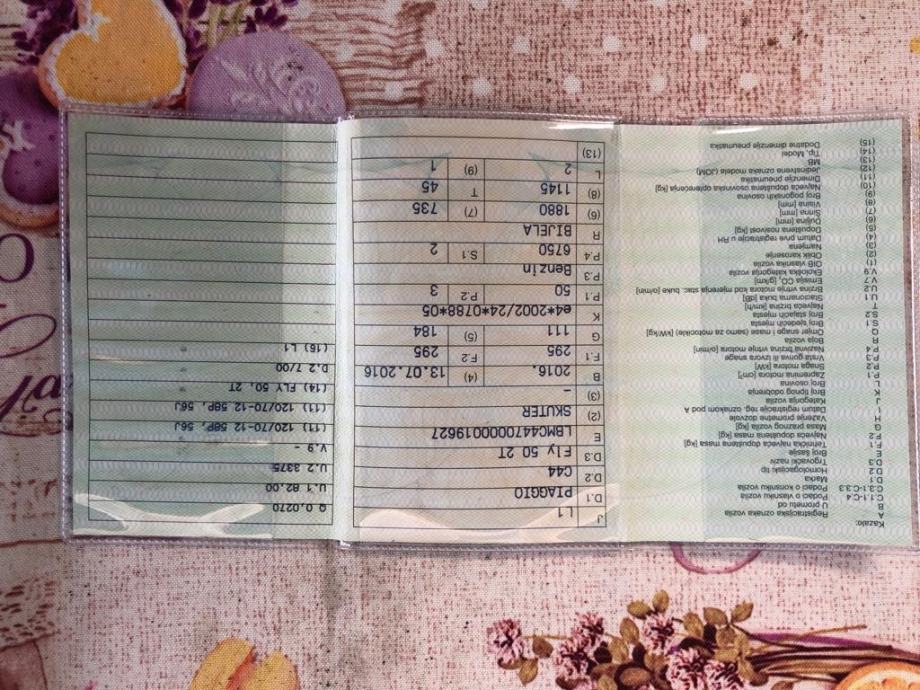 Kazalo:
A Registracijska oznaka vozila
B U prometu od
C.1.1-C.4 Podaci o vlasniku vozila
C.3.1-C.3.3 Podaci o korisniku vozila
D.1 Marka
D.2 Homologacijski tip
D.3 Trgovački naziv
E Broj šasije
F.1 Tehnička najveća dopuštena masa [kg]
F.2 Najveća dopuštena masa [kg]
G Masa praznog vozila [kg]
H Važenje prometne dozvole
I Datum registracije reg. oznakom pod A
J Kategorija vozila
K Broj tipnog odobrenja
L Broj osovina
P.1 Zapremina motora [cm³]
P.2 Snaga motora [kW]
P.3 Vrsta goriva ili izvora snage
P.4 Nazivna brzina vrtnje motora [o/min]
R Boja vozila
Q Omjer snage i mase (samo za motocikle) [kW/kg]
S.1 Broj sjedećih mjesta
S.2 Broj stajaćih mjesta
T Najveća brzina [km/h]
U.1 Stacionarna buka [dB]
U.2 Brzina vrtnje motora kod mjerenja stac. buke [o/min]
V.7 Emisija CO₂ [g/km]
V.9 Ekološka kategorija vozila
(1) OIB vlasnika vozila
(2) Oblik karoserije
(3) Namjena
(4) Datum prve registracije u RH
(5) Dopuštena nosivost [kg]
(6) Duljina [mm]
(7) Širina [mm]
(8) Visina [mm]
(9) Broj pogonskih osovina
(10) Najveća dopuštena osovinska opterećenja [kg]
(11) Dimenzije pneumatika
(12) Jedinstvena oznaka modela (JOM)
(13) MB
(14) Tip, Model
(15) Dodatne dimenzije pneumatika
J L1
D.1 PIAGGIO
D.2 C44
D.3 Fly 50 2T
E LBMC4470000019627
(2) SKUTER
(3) -
B 2016. (4) 13.07.2016
F.1 295 F.2 295
G 111 (5) 184
K e4*2002/24*0788*05
P.1 50 P.2 3
P.3 Benzin
P.4 6750 S.1 2
R BIJELA
(6) 1880 (7) 735
(8) 1145 T 45
L 2 (9) 1
(13)
Q 0,0270
U.1 82,00
U.2 3375
V.9 -
(11) 120/70-12 58P, 56J
(11) 120/70-12 58P, 56J
(14) FLY 50, 2T
D.2 7/00
(16) L1